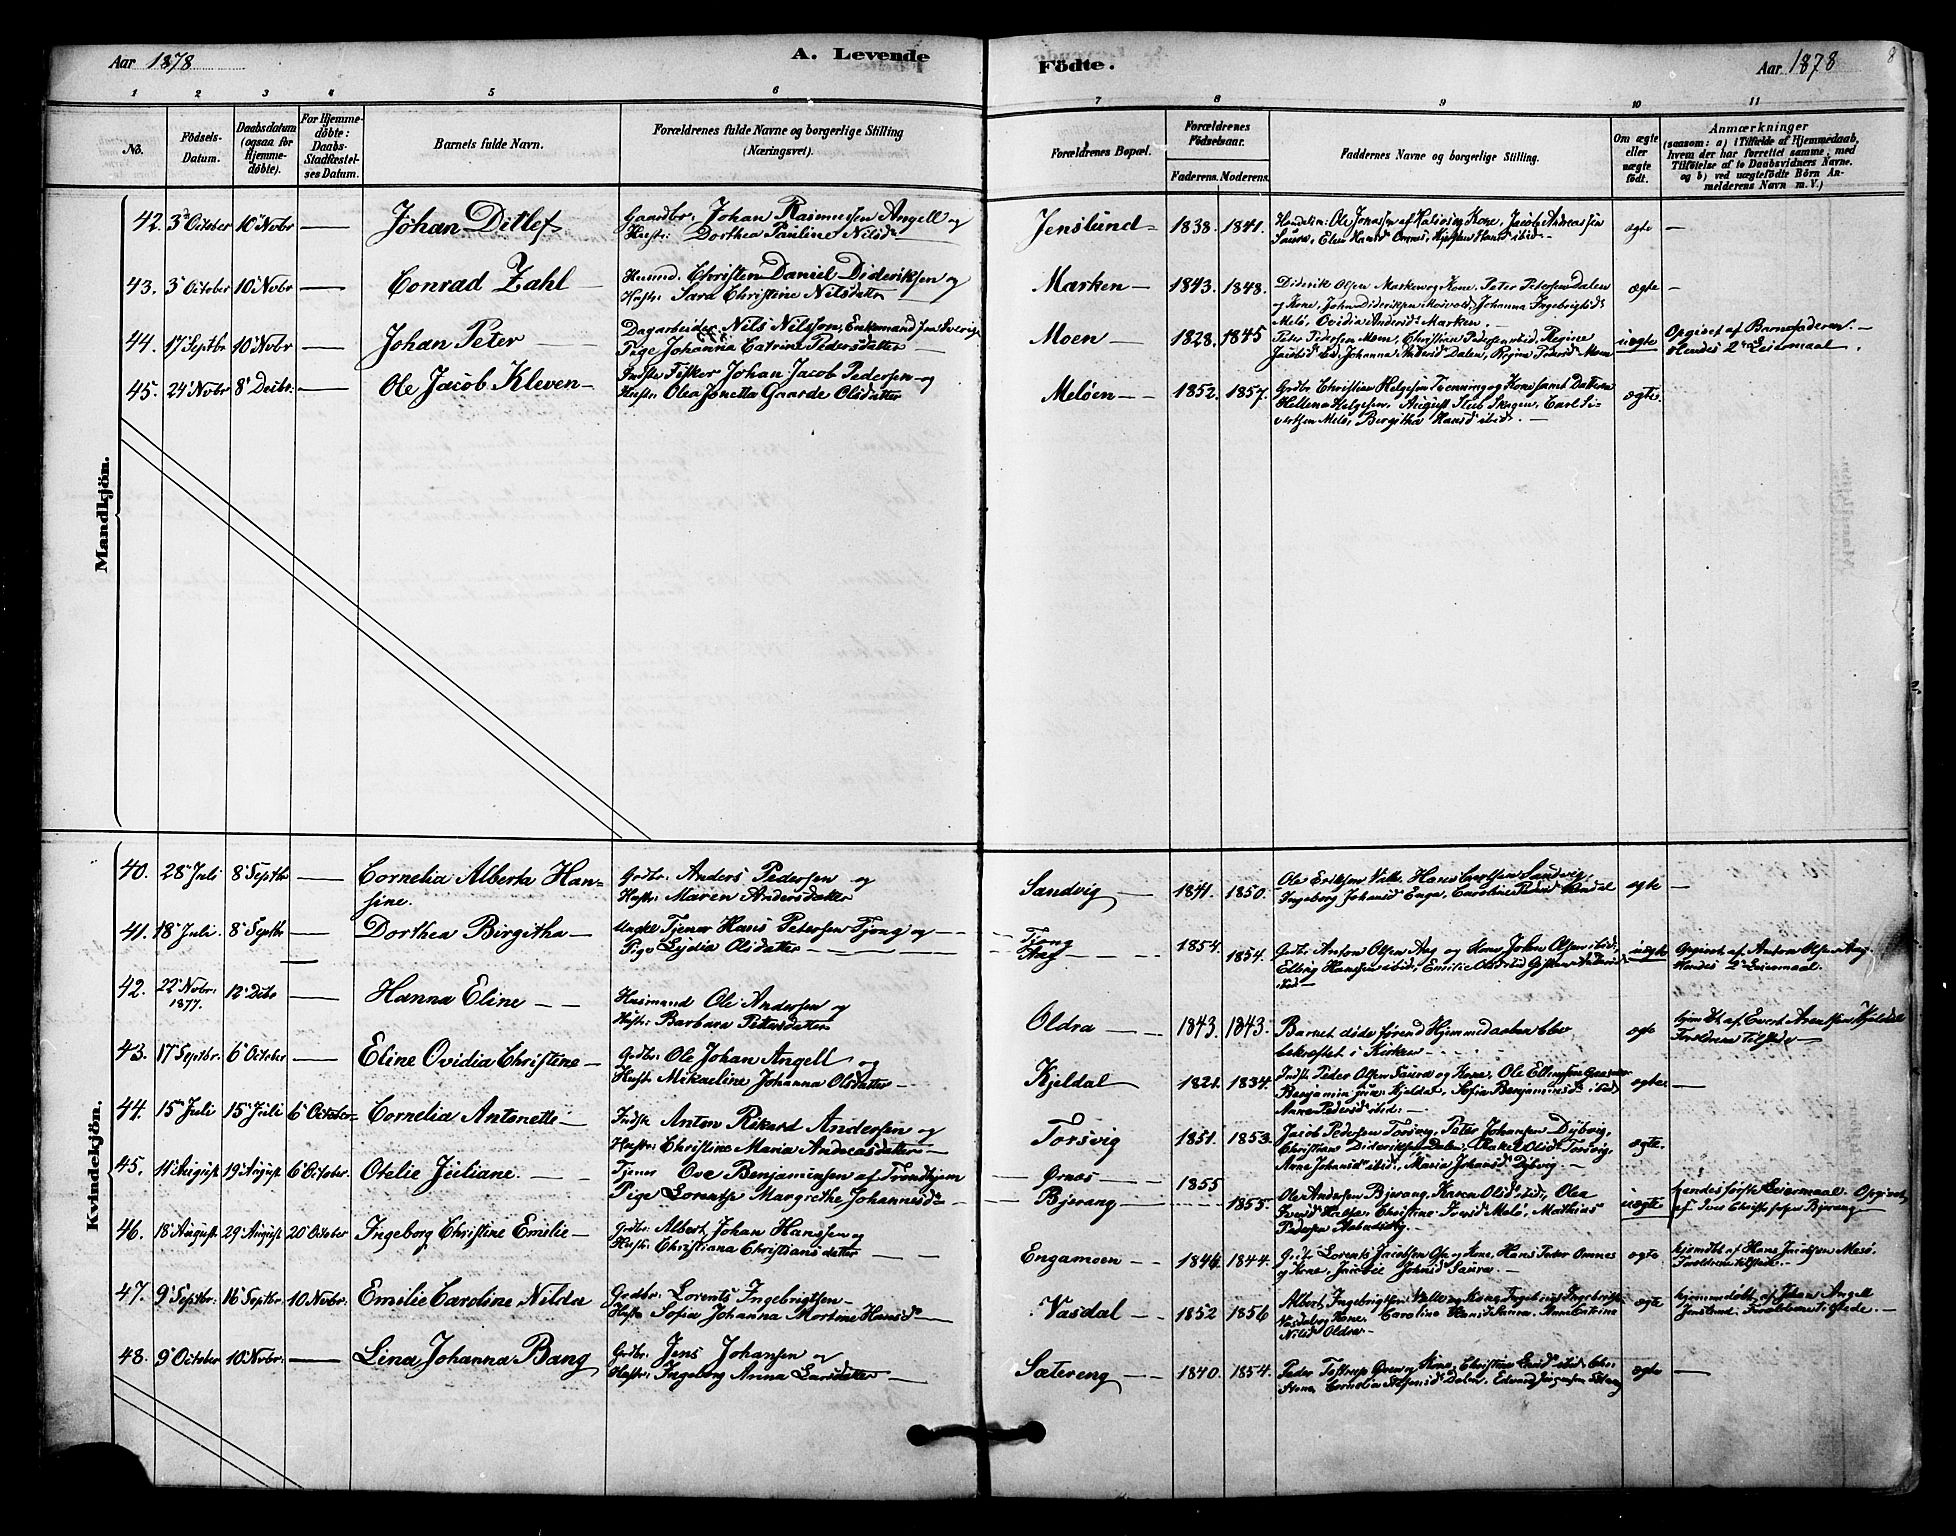 Aar 1878
A. Levende
Födte.
Aar 1878
8
1 2 3 4 5 6 7 8 9 10 11
No.
Födsels-
Datum.
Daabsdatum
(ogsaa for
Hjemme-
döbte).
For Hjemme-
döbte:
Daabs-
Stadfæstel-
ses Datum.
Barnets fulde Navn.
Forældrenes fulde Navne og borgerlige Stilling
(Næringsvei).
Forældrenes Bopæl.
Forældrenes
Födselsaar.
Faderens. Moderens.
Faddernes Navne og borgerlige Stilling.
Om ægte
eller
uægte
födt.
Anmærkninger
(saasom: a) i Tilfælde af Hjemmedaab,
hvem der har forrettet samme, med
Tilföielse af to Daabsvidners Navne,
og b) ved uægtefödte Börn An-
melderens Navn m. V.)
Mandkjön.
42. 3 October 10 Novbr — Johan Ditlef Gaardbr. Johan Rasmussen Angell og
Hustr: Dorthea Pauline Nilsd. —
Jenslund 1838. 1841. Ole Jonassen af Kone, Jacob Andreassen
ægte —
43. 3 October 10 Novbr — Conrad Zahl — Husmd. Christen Daniel Dideriksen og
Hustr. Sara Christine Nilsdatter
Marken — 1843. 1848. Diderik Olsen Marken og Kone, Peter Pedersen Dalen
og Kone, John Dideriksen Johanna Ingebrigtsd.
Melö, Ovidia Andersd. Marken. —
ægte —
44. 17 Septbr 10 Novbr — Johan Peter — Dagarbeider Nils Nilsson, Enkemand fra Sverige
Pige Johanna Catrine Pedersdatter —
Moen — 1828. 1845 Peter Pedersen Moen, Christian Pedersen ibid, Regine
Johanna Pedersd Dalen, Regine Pedersd. Moen
uægte Opgivet af Barnefaderen. —
Hendes 2 Leiermaal.
45. 24 Novbr 8 Decbr. — Ole Jacob Kleven — Indst. Fisker Johan Jacob Pedersen og
Hustr: Olea Jonetta Gaarde Olsdatter
Meløen — 1852. 1857. Grdbr. Christian Helgesen Tenning og Kone samt Datteren
Hellena Helgesen, August Skagen, Carl Si-
vertsen Melö, Birgitha Hansd ibid. —
ægte.
Kvindekjön.
40. 28 Juli 8 Septbr — Cornelia Alberta Han-
sine.
Grdbr. Anders Pedersen og
Hustr: Maren Andersdatter
Sandvig — 1841. 1850. Ole Eriksen Hans Carlsen Sandvig,
Ingeborg Johansd Enga, Caroline
ægte —
41. 18 Juli. 8 Septbr — Dorthea Birgitha — Ungkl Tjener Hans Pedersen Tjong og —
Pige Lydia Olsdatter —
Tjong
Aag — 1854. 1854. Grdbr. Anton Olsen Aag og Kone John Olsen ibid,
Ellerig Hanssen ibid, Emilie
ibid —
uægte Opgivet af Anton Olsen Aag.
Hendes 2 Leiermaal.
42. 22 Novbr. 1877. 12 Dcbr — Hanna Eline — Husmand Ole Andersen og
Hustr: Barbara Petersdatter
Oldra — 1843. 1843. Barnet döde förend Hjemmedaaben blev
bekræftet i Kirken —
ægte hjemdbt. af Evert Arentsen Kjeldal
Forældrene tilstede —
43. 17 Septbr. 6 October — Eline Ovidia Christine — Grdbr. Ole Johan Angell og
Hustr. Mikaeline Johanna Olsdatter —
Kjeldal 1821. 1834. Indst. Peder Olsen Saura og Kone, Ole Ellingsen
Benjamin Kjeldal, Sofia Benjaminsd. ibid,
Anne Pedersd. ibid. —
ægte —
44. 15 Juli 15 Juli 6 October — Cornelia Antonette — Indst. Anton Rikard Andersen og
Hustr: Christine Maria Andreasdatter —
Torsvig 1851. 1853. Jacob Pedersen Torsvig, Peter Johansen Dybvig,
Christian Dideriksen Dalen, Rakel Olsd Torsvig,
Arne Johansd ibid, Maria Johansd. Dybvig —
ægte.
45. 11 August 19 August 6 October Otelie Juliane. — Tjener Ove Benjaminsen af Trondhjem
Pige Lorentse Margrethe Johannesd. —
Örnes —
Bjerang — 1855 1855. Ole Andersen Bjerang, Karen Olsd ibid, Olea
Iversd Christine Iversd Melö, Mathias
Pedersen
uægte hendes förste Leiermaal. Opgivet
af Iver Christophersen Bjerang —
46. 18 August. 29 August 20 October Ingeborg Christine Emelie — Grdbr. Albert Johan Hanssen og
Hustr. Christiana Christiansdatter —
Engamoen — 1846 1844. Grdbr. Lorents Jacobsen og Kone, Hans Peter Omnes
og Kone, Johnsd Saura —
ægte hjemdbt af Hans Jacobsen Mesö.
Forældrene tilstede. —
47. 9 Septbr. 16 Septbr. 10 Novbr. Emilie Caroline Nilda Grdbr: Lorents Ingebrigtsen —
Hustr. Sofia Johanna Mortine Hansd. —
Vasdal — 1852 1856 Albert Ingebrigtsen og Kone, Ingebrigtsen
Vasdal og Kone, Caroline Hansd Saura,
Nilsd Oldra —
ægte hjemmedöbt af Johan Angell
Jenslund. Forældrene tilstede. —
48. 9 October 10 Novbr: — Lina Johanna Bang Grdbr. Jens Johansen og
Hustr: Ingeborg Anna Larsdatter —
Sætereng — 1840. 1854. Peder og Kone, Christine ibid,
Cornelia Dalen, Edvard Jörgensen
ægte —